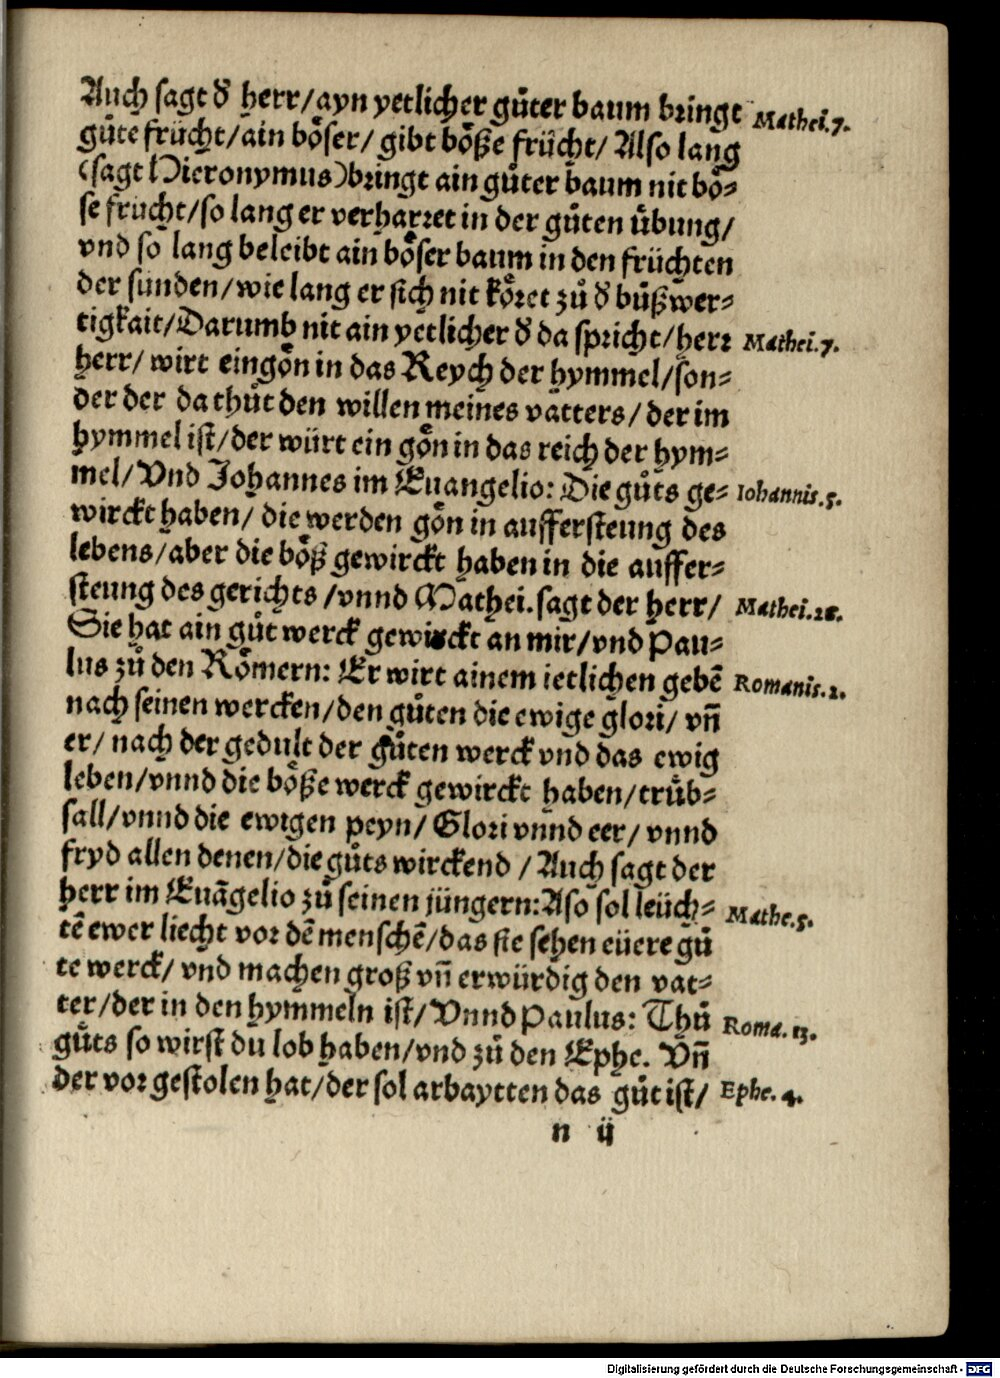 Auch sagt d̕ herr/ayn yetlicher gůter baum bringt Mathei.7.
gůte frücht/ain bo̊ser/ gibt bo̊ße frücht/ Also lang
(sagt Hieronymus)bringt ain gůter baum nit bo̊-
se frucht/so lang er verharret in der gůten übung/
vnd so lang beleibt ain bo̊ser baum in den früchten
der sunden/wie lang er sich nit ko̊ret zů d̕ bůßwer-
tigkait/Darumb nit ain yetlicher d̕ da spricht/herr Mathei.7.
herr/ wirt eingo̊n in das Reych der hymmel/son-
der der da thůt den willen meines vatters/ der im
hymmel ist/der würt ein go̊n in das reich der hym-
mel/ Vnd Johannes im Euangelio: Die gůts ge- Iohannis.5.
wirckt haben/ die werden go̊n in auffersteung des
lebens/aber die bo̊ß gewirckt haben in die auffer-
steung des gerichts /vnnd Mathei.sagt der herr/ Mathei.28.
Sie hat ain gůt werck gewirckt an mir/vnd Pau-
lus zů den Ro̊mern: Er wirt ainem ietlichen gebẽ Romanis.2.
nach seinen wercken/den gůten die ewige glori/ vñ
er/ nach der gedult der gůten werck vnd das ewig
leben/vnnd die bo̊ße werck gewirckt haben/trůb-
sall/vnnd die ewigen peyn/ Glori vnnd eer/ vnnd
fryd allen denen/die gůts wirckend / Auch sagt der
herr im Euãgelio zů seinen jüngern:Aso sol leüch- Mathe.5.
tẽ ewer liecht vor dẽ menschẽ/das sie sehen eüere gů
te werck/ vnd machen groß vñ erwürdig den vat-
ter/der in den hymmeln ist/ Vnnd Paulus: Thů Roma.13.
gůts so wirst du lob haben/vnd zů den Ephe. Vñ
der vor gestolen hat/der sol arbaytten das gůt ist/ Ephe.4.
n ij
Digitalisierung gefördert durch die Deutsche Forschungsgemeinschaft - DFG